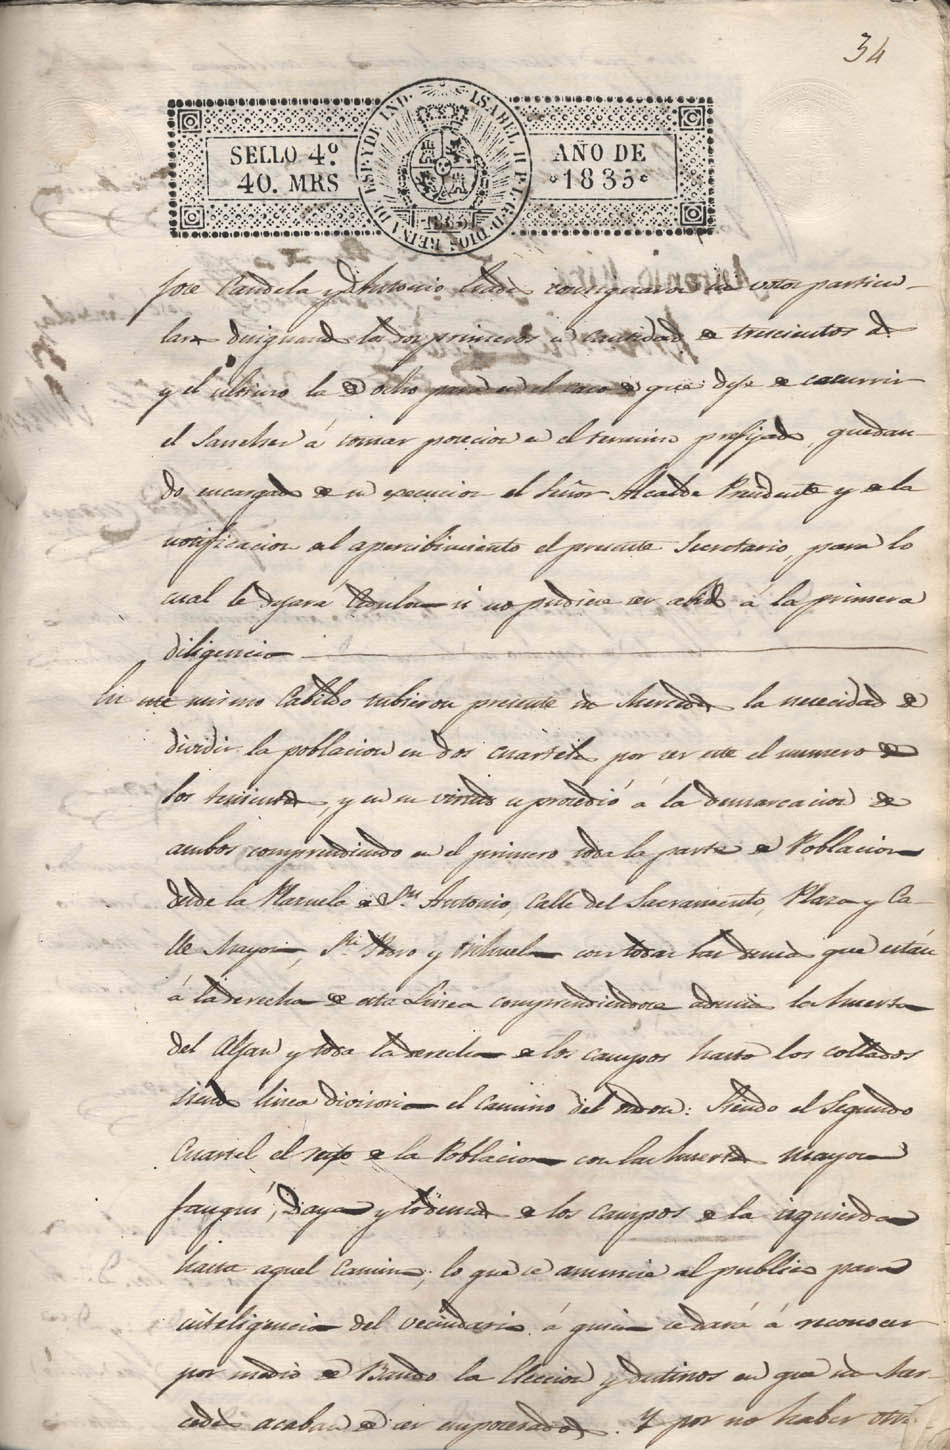 34
SELLO 4º
40. MRS
AÑO DE
1835
ISABEL II P. L. G. D. DIOS REINA DE ESP. Y DE IND.
Jose Candela y Antonio consignaron votos particu-
lares designando los dos primeros la cantidad de trescientos
y el ultimo la de ocho para en el caso de que deje de cocurrir
el Sanchez á tomar posecion en el termino prefijado, quedan-
do encargado de su execucion el Señor Alcalde Presidente y de la
notificacion del apercibimiento el presente Secretario, para lo
cual le dejará Cedula si no pudiere ser abido á la primera
diligencia
En este mismo Cabildo tubieron presente sus Mercedes la necesidad de
dividir la poblacion en dos cuarteles por ser este el numero de
los tenientes, y en su virtud se procedió á la demarcacion de
ambos comprendiendo en el primero toda la parte de Poblacion
desde la Plazuela de Sn. Antonio, Calle del Sacramento, Plaza y Ca-
lle Mayor, Sn. Roco y Orihuela con todas las demas que están
á la derecha de esta Linea comprendiendose ademas la huerta
del y toda la derecha de los campos hasta los collados
siendo linea divisoria el Camino del: Siendo el Segundo
Cuartel el resto de la Poblacion con las huertas mayor
fauqui, Daya y lo demas de los campos de la izquierda
hasta aquel Camino; lo que se anuncie al publico para
inteligencia del vecindario á quien se dará á reconocer
por medio de Bando la Eleccion y destinos en que sus Mer-
cedes acaban de ser emposecados. Y por no haber otra